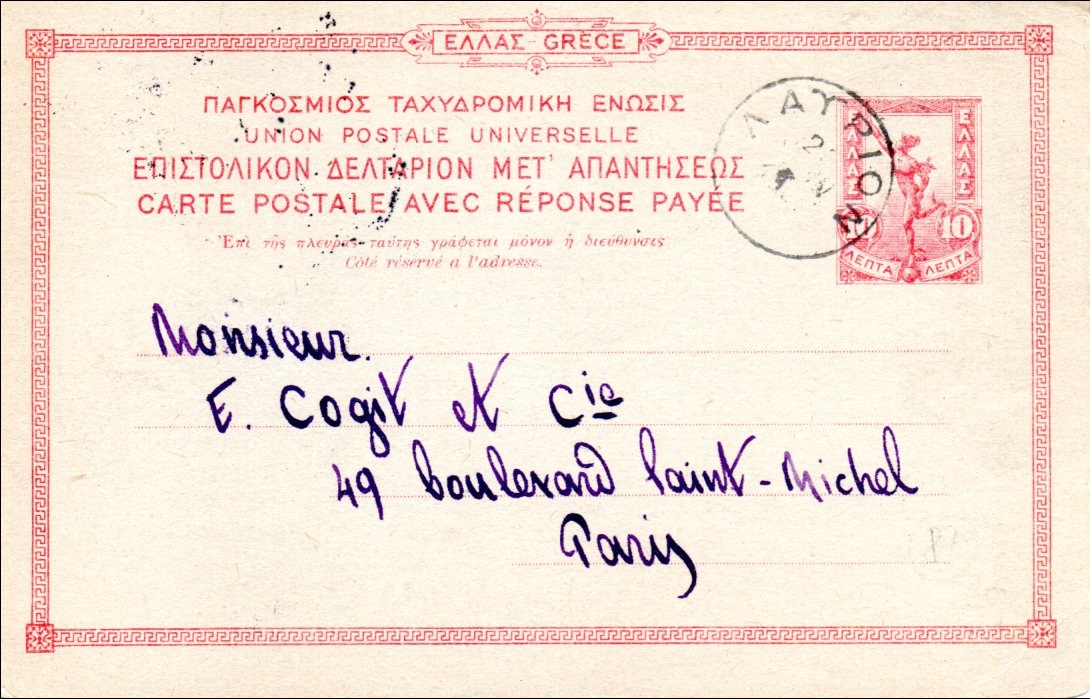 ΕΛΛΑΣ - GRÈCE
ΠΑΓΚΟΣΜΙΟΣ ΤΑΧΥΔΡΟΜΙΚΗ ΕΝΩΣΙΣ
UNION POSTALE UNIVERSELLE
ΕΠΙΣΤΟΛΙΚΟΝ ΔΕΛΤΑΡΙΟΝ ΜΕΤ' ΑΠΑΝΤΗΣΕΩΣ
CARTE POSTALE AVEC RÉPONSE PAYÉE
Ἐπὶ τῆς πλευρᾶς ταύτης γράφεται μόνον ἡ διεύθυνσις
Côté réservé a l'adresse.
ΛΑΥΡΙΟΝ
2
ΕΛΛΑΣ ΕΛΛΑΣ
10 10
ΛΕΠΤΑ ΛΕΠΤΑ
Monsieur.
E. Cogit et Cie
49 boulevard Saint-Michel
Paris